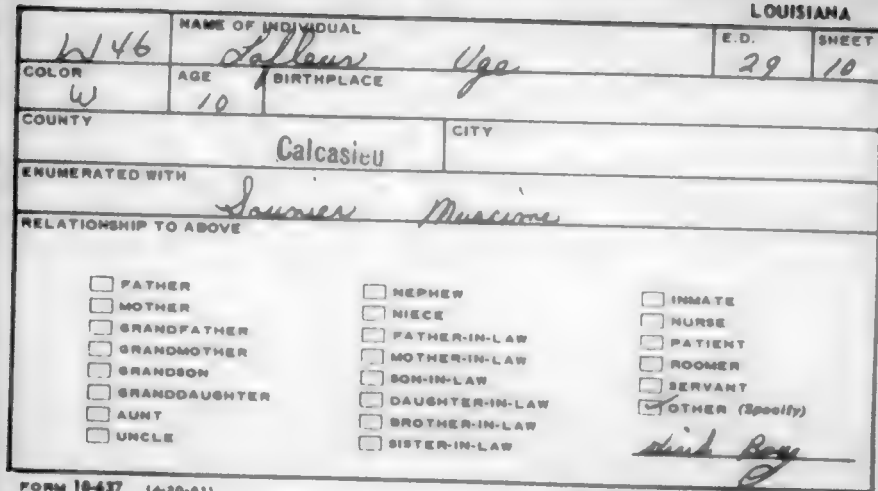 LOUISIANA
NAME OF INDIVIDUAL
E.D.
SHEET
W 46
29
10
COLOR
AGE
BIRTHPLACE
W
10
COUNTY
CITY
Calcasieu
ENUMERATED WITH
Saunier
RELATIONSHIP TO ABOVE
FATHER
MOTHER
GRANDFATHER
GRANDMOTHER
GRANDSON
GRANDDAUGHTER
AUNT
UNCLE
NEPHEW
NIECE
FATHER-IN-LAW
MOTHER-IN-LAW
SON-IN-LAW
DAUGHTER-IN-LAW
BROTHER-IN-LAW
SISTER-IN-LAW
INMATE
NURSE
PATIENT
ROOMER
SERVANT
OTHER (Specify)
Boy
FORM 10-637